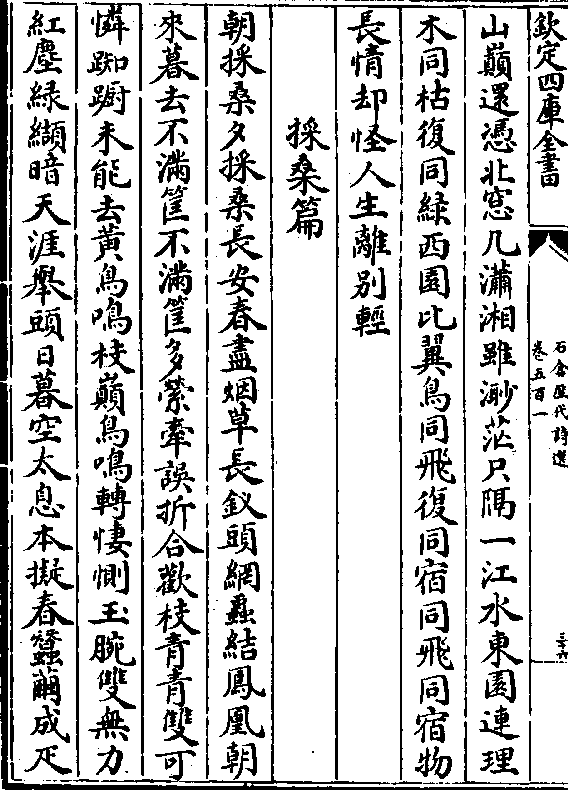 欽定四庫全書
石倉歷代詩選
卷五百一
三十六
山巔還憑北窓几瀟湘雖渺茫只隔一江水東園連理
木同枯復同綠西園比翼鳥同飛復同宿同飛同宿物
長情却怪人生離別輕
採桑篇
朝採桑夕採桑長安春盡烟草長釵頭網蟲結鳳凰朝
來暮去不滿筐不滿筐多縈牽誤折合歡枝青青雙可
憐踟蹰未能去黄鳥鳴枝巔鳥鳴轉悽惻玉腕雙無力
紅塵緑纈暗天涯舉頭日暮空太息本擬春蠶繭成疋